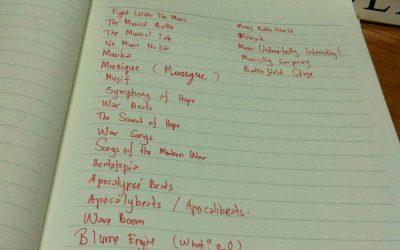 Fight With The Music
The Musical Battle
The Musical Tale
No Music No Life
Musika
Musique ( Musique )
Musif
Symphony of Hope
War Beats
The Sound of Hope
War Songs
Songs of the Modern War
Beatstopia
Apocalypse Beats
Apocalybeats / Apocalibeats.
Wave Boom
Blurre Engine (What?
Music Battle World
Musik
Music (Unknotally Interesting!
Musically Surprising
Battlefield Stage